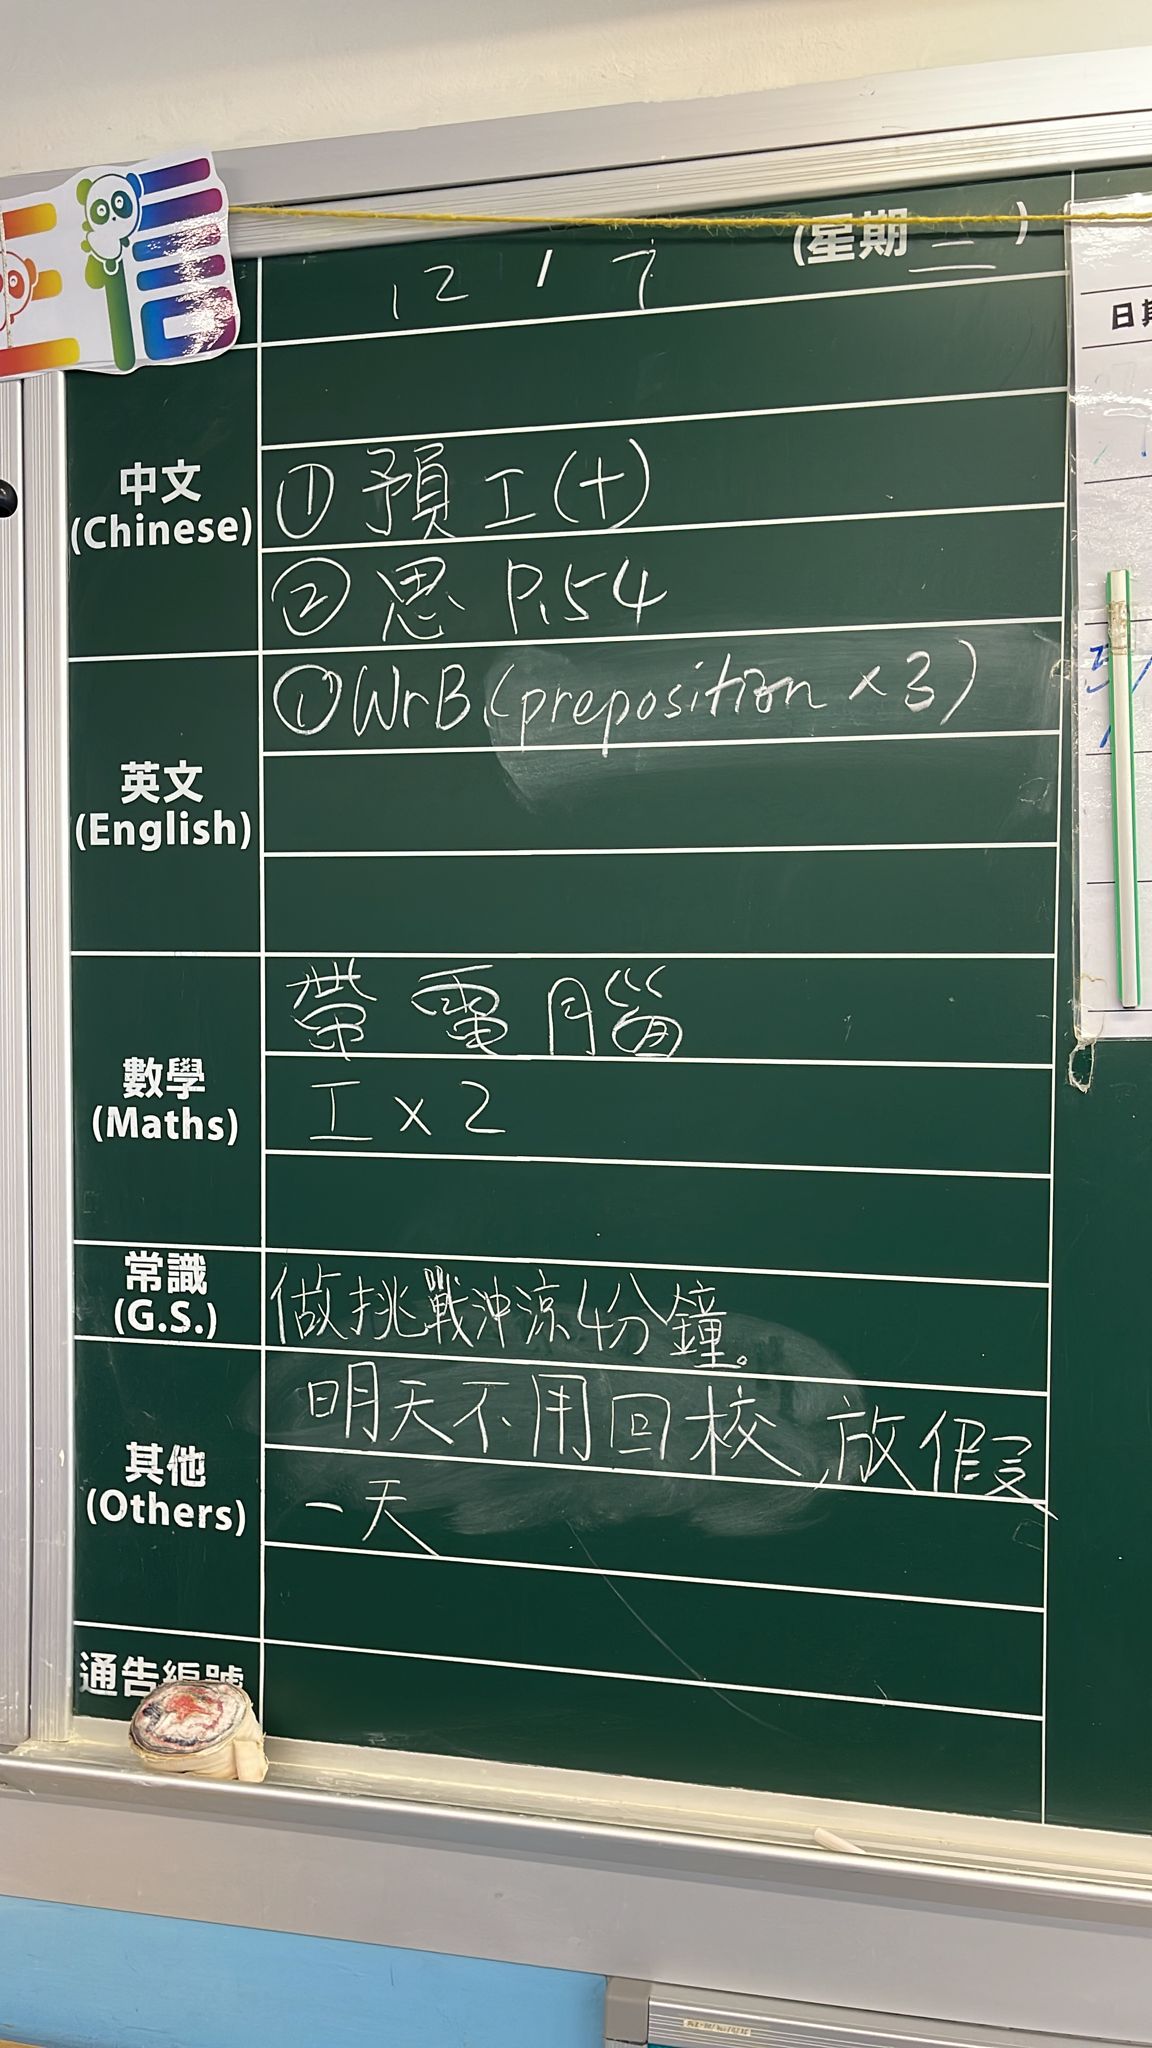 三信
12 / 7 (星期二)
中文
(Chinese)
① 預工(十)
② 思 P.54
英文
(English)
① WrB (preposition × 3)
數學
(Maths)
帶電腦
工 × 2
常識
(G.S.)
做挑戰沖涼4分鐘。
其他
(Others)
明天不用回校,放假
一天
通告編號
日期